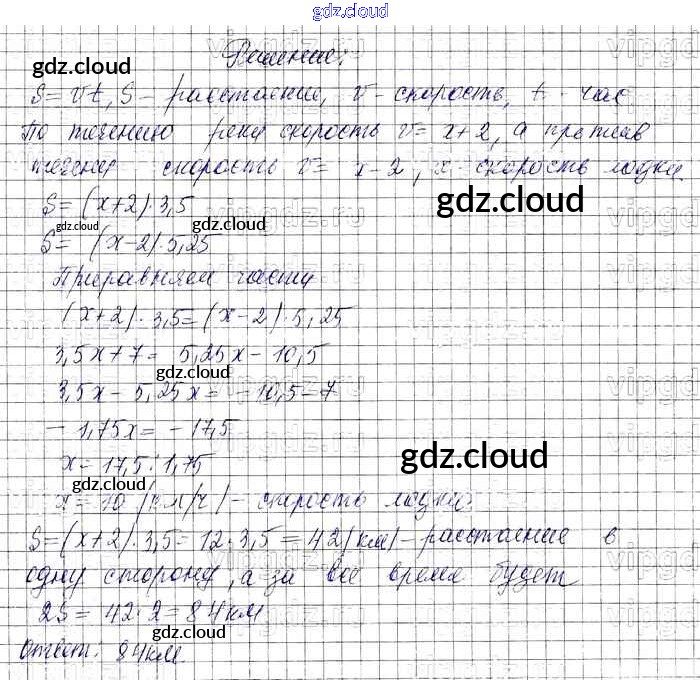 gdz.cloud
Решение:
S = vt, S - расстояние, v - скорость, t - час
По течению реки скорость v = x+2, а против
течения скорость v = x-2, x - скорость лодки.
S = (x+2)·3,5
S = (x-2)·5,25
Приравняем части
(x+2)·3,5 = (x-2)·5,25
3,5x+7 = 5,25x-10,5
3,5x - 5,25x = -10,5-7
-1,75x = -17,5
x = 17,5:1,75
x = 10 (км/ч) - скорость лодки.
S = (x+2)·3,5 = 12·3,5 = 42 (км) - расстояние в
одну сторону, а за все время будет
2S = 42·2 = 84 км
Ответ: 84 км.